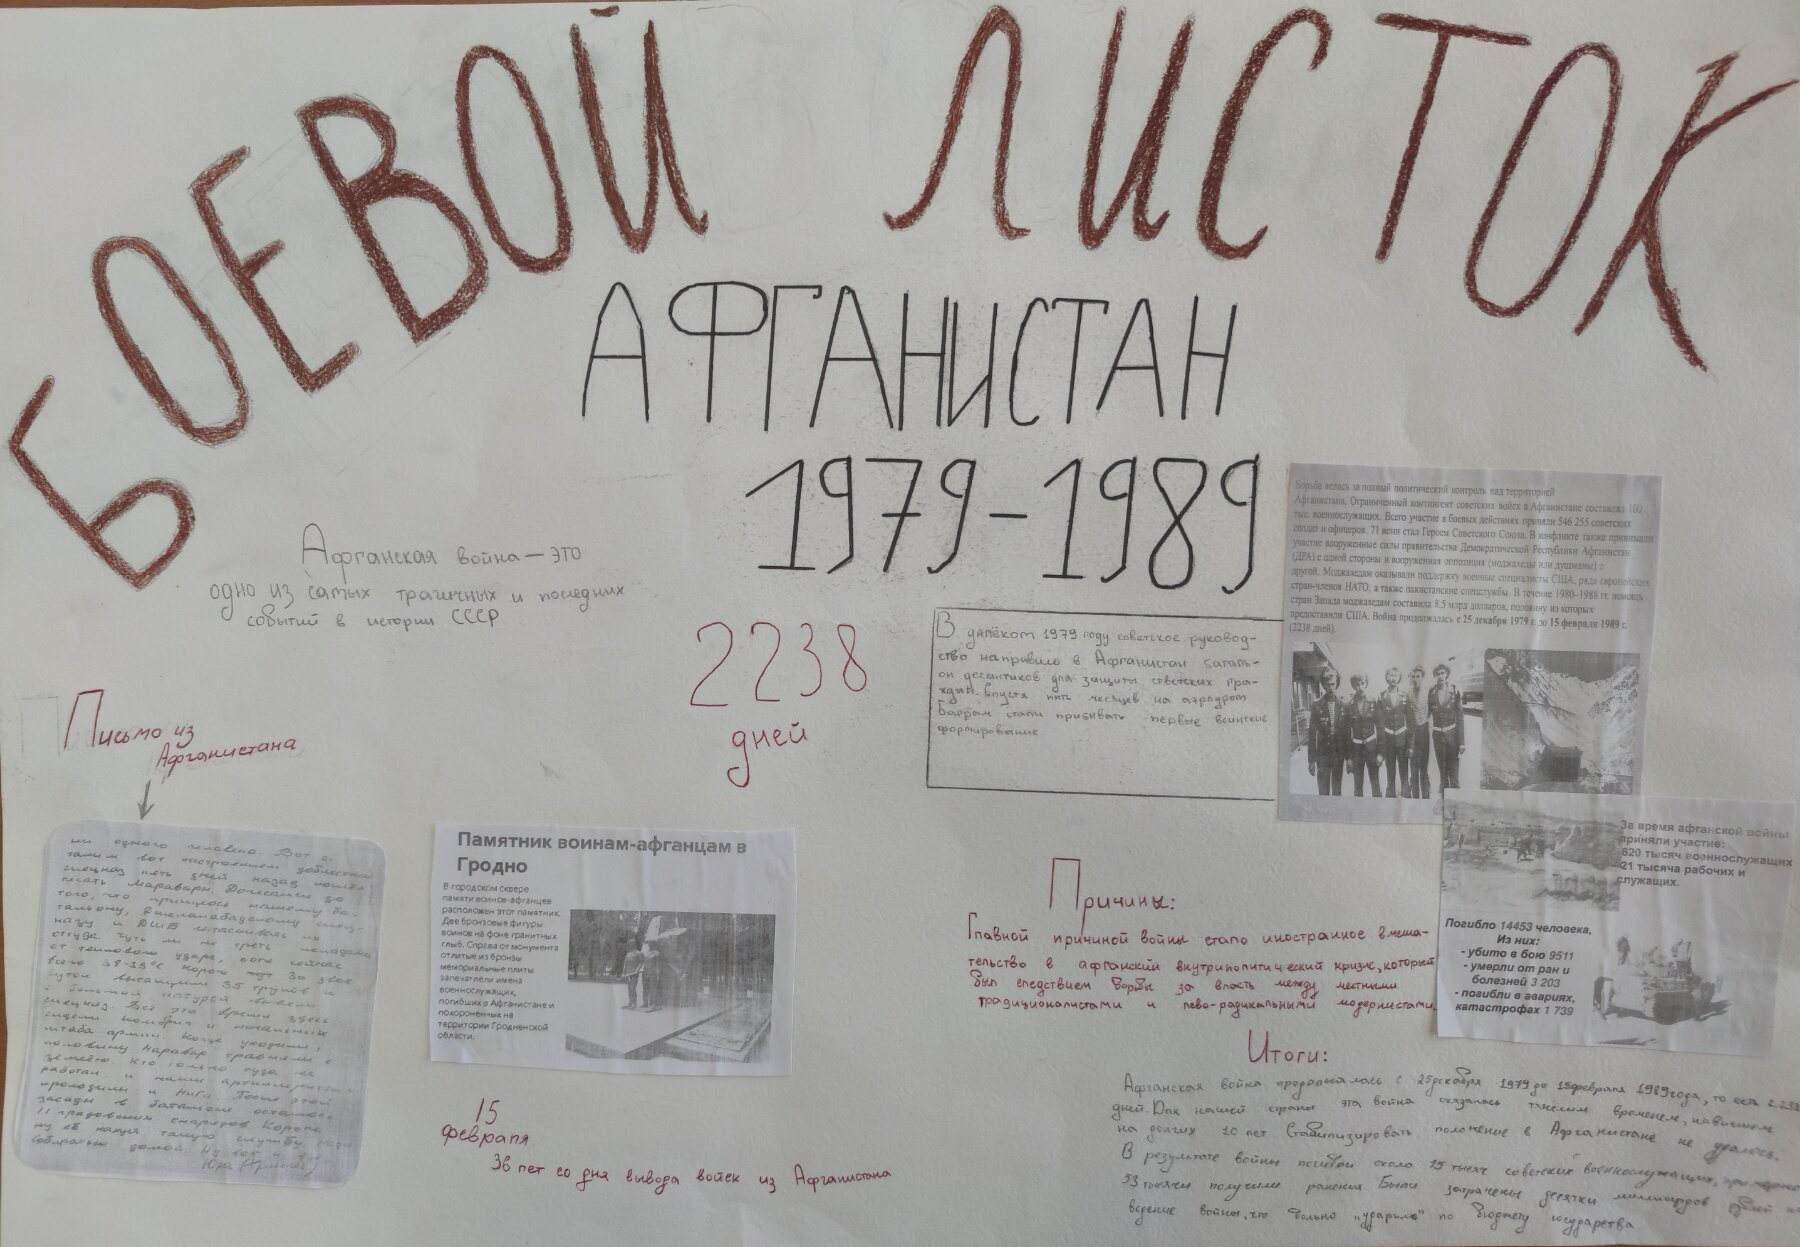 БОЕВОЙ ЛИСТОК
АФГАНИСТАН
1979-1989
Афганская война — это
одно из самых трагичных и последних
событий в истории СССР
2238
дней
В далёком 1979 году советское руковод-
ство направило в Афганистан баталь-
он десантиков для защиты советских гра-
ждан. Спустя пять месяцев на аэродром
Баграм стали прибивать первые воинские
формирование
Борьба велась за полный политический контроль над территорией
Афганистана. Ограниченный контингент советских войск в Афганистане составлял 100
тыс. военнослужащих. Всего участие в боевых действиях приняли 546 255 советских
солдат и офицеров. 71 воин стал Героем Советского Союза. В конфликте также принимали
участие вооруженные силы правительства Демократической Республики Афганистан
(ДРА) с одной стороны и вооруженная оппозиция (моджахеды или душманы) с
другой. Моджахедам оказывали поддержку военные специалисты США, ряда европейских
стран-членов НАТО, а также пакистанские спецслужбы. В течение 1980–1988 гг. помощь
стран Запада моджахедам составила 8,5 млрд долларов, половину из которых
предоставили США. Война продолжалась с 25 декабря 1979 г. до 15 февраля 1989 г.
(2238 дней).
Письмо из
Афганистана
ни одного человека. Вот с
таким вот настроением доблестный
спецназ пять дней назад пошел
чесать Маравары. Дочесался до
того, что пришлось нашему ба-
тальону, Джелалабадскому спец-
назу и ДШБ вытаскивать их
оттуда. Чуть ли не треть попадала
от теплового удара, хотя сейчас
всего 38-39°С. Короче за двое
суток вытащили 35 трупов и
с большой натугой вывели
спецназ. Всё это время здесь
сидели комбриг и начальник
штаба армии. Когда уходили,
половину Маравар сравняли с
землёю. Кто только туда не
работал и наши артиллеристы
проходили и МиГи. После этой
засады в батальоне осталось
11 градовских снарядов. Короче
ну её нахуй такую службу, надо
собираться домой. Ну вот и
Юра
Памятник воинам-афганцам в
Гродно
В городском сквере
памяти воинов-афганцев
расположен этот памятник.
Две бронзовые фигуры
воинов на фоне гранитных
глыб. Справа от монумента
отлитые из бронзы
мемориальные плиты
запечатлели имена
военнослужащих,
погибших в Афганистане и
похороненных на
территории Гродненской
области.
За время афганской войны
приняли участие:
620 тысяч военнослужащих
21 тысяча рабочих и
служащих.
Погибло 14453 человека,
Из них:
- убито в бою 9511
- умерли от ран и
болезней 3 203
- погибли в авариях,
катастрофах 1 739
Причины:
Главной причиной войны стало иностранное вмеша-
тельство в афганский внутриполитический кризис, который
был следствием борьбы за власть между местными
традиционалистами и лево-радикальными модернистами.
15
февраля
36 лет со дня вывода войск из Афганистана
Итоги:
Афганская война продолжалась с 25 декабря 1979 до 15 февраля 1989 года, то есть 2.238
дней. Для нашей страны эта война оказалась тяжелым временем, нависшем
на долгих 10 лет Стабилизировать положение в Афганистане не удалось.
В результате войны погибли около 15 тысяч советских военнослужащих,
53 тысячи получили ранения Были затрачены десятки миллиардов рублей на
ведение войны, что больно „ударило" по бюджету государства